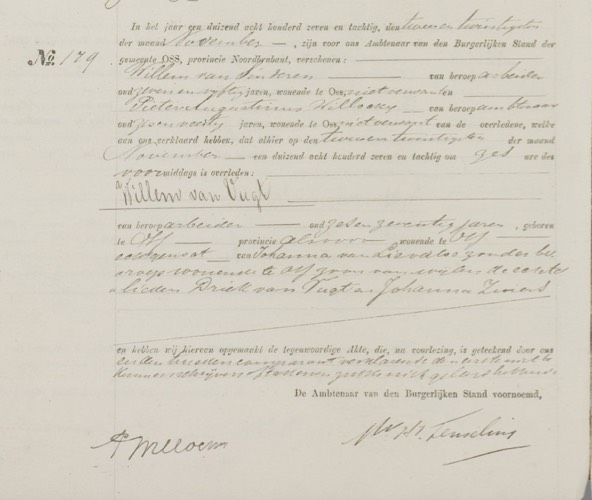 In het jaar een duizend acht honderd zeven en tachtig, den twee en twintigsten
der maand November, zijn voor ons Ambtenaar van den Burgerlijken Stand der
gemeente OSS, provincie Noordbrabant, verschenen:
No. 179
Willem van van beroep arbeider
oud zeven en vijftig jaren, wonende te Oss, niet verwant en
Pieter Augustinus van beroep ambtenaar
oud jaren, wonende te Oss, niet verwant van de overledene, welke
aan ons verklaard hebben, dat alhier op den twee en twintigsten der maand
November een duizend acht honderd zeven en tachtig om zes ure des
voormiddags is overleden:
Willem van Vugt
van beroep arbeider oud zes en zeventig jaren, geboren
te Oss provincie alsvoor, wonende te Oss
echtgenoot van Johanna van zonder be
roep wonende te Oss zoon van wijlen de echte
lieden Driek van Vugt en Johanna
en hebben wij hiervan opgemaakt de tegenwoordige Akte, die, na voorlezing, is geteekend door ons
en den tweeden comparant verklarende de eerste niet te
kunnen schrijven of teekenen
De Ambtenaar van den Burgerlijken Stand voornoemd,